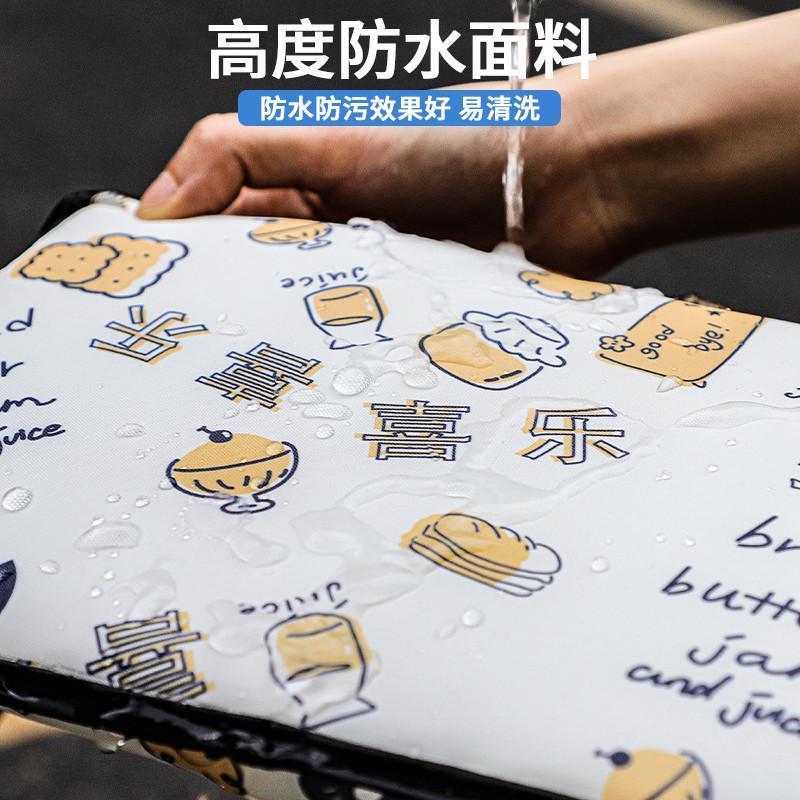 高度防水面料
防水防污效果好 易清洗
juice
乐
喜
good
bye!
喜乐
juice
juice
喜
and juice